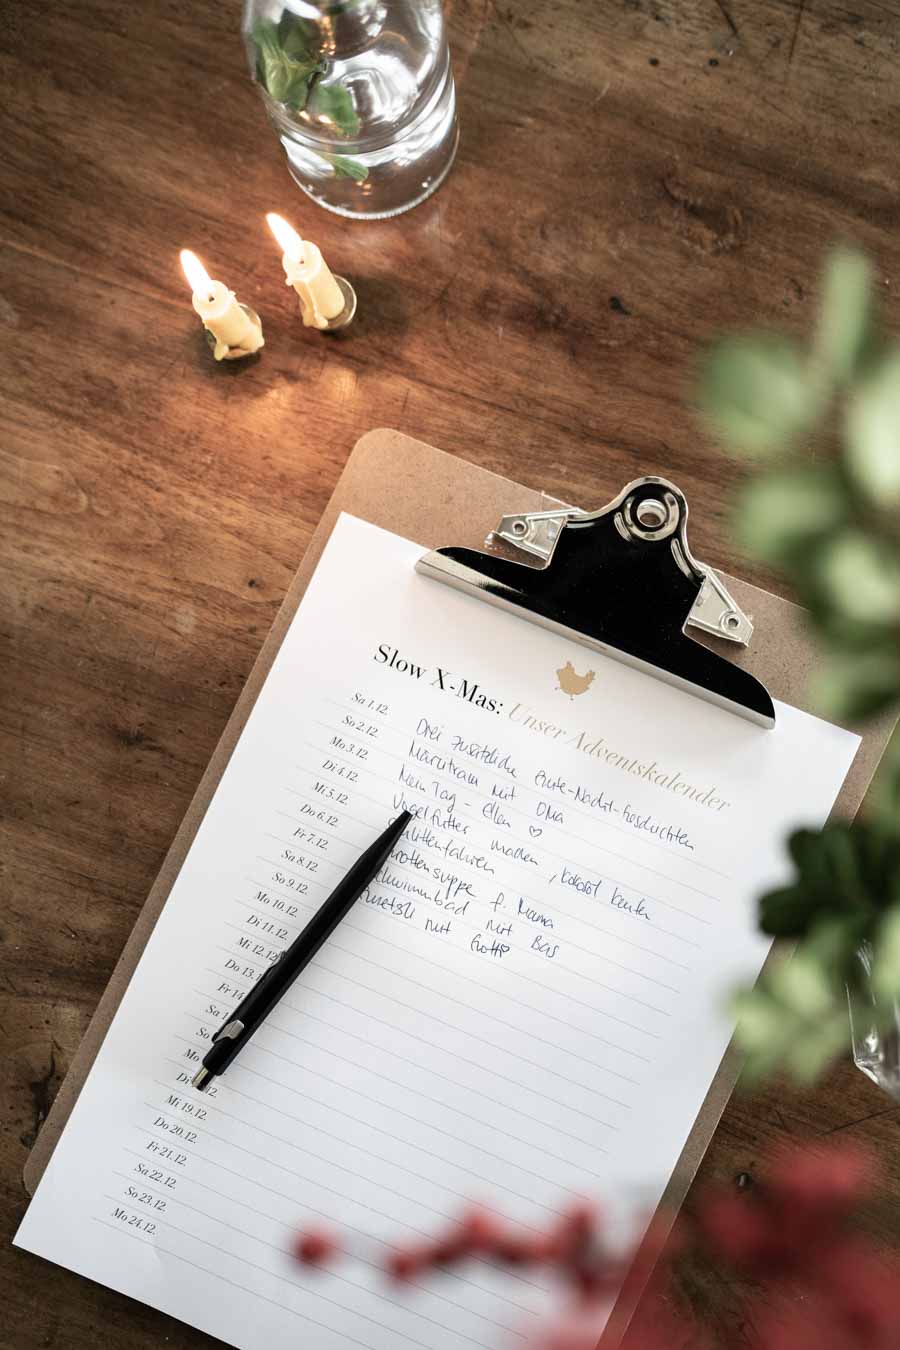 Slow X-Mas: Unser Adventskalender
Sa 1.12. Drei zusätzliche Gute-Nacht-Geschichten
So 2.12. mit Oma
Mo 3.12. Mein Tag - Ellen ♡
Di 4.12. Vogelfutter machen, kokosöl kaufen
Mi 5.12. Schlittenfahren
Do 6.12. Karottensuppe f. Mama
Fr 7.12. Schwimmbad mit Bas
Sa 8.12. mit Gotti♡
So 9.12.
Mo 10.12.
Di 11.12.
Mi 12.12.
Do 13.1
Fr 14
Sa 1
So
Mo
Di 12.
Mi 19.12.
Do 20.12.
Fr 21.12.
Sa 22.12.
So 23.12.
Mo 24.12.